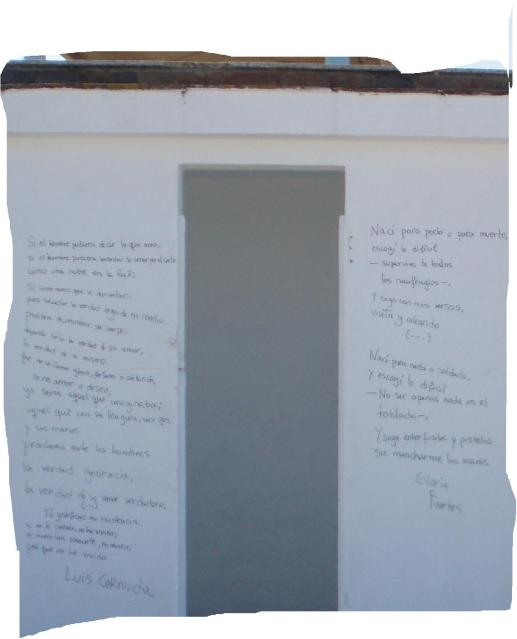 Si el hombre pudiera decir lo que ama,
si el hombre pudiera levantar su amor por el cielo
como una nube en la luz;
Si como muros que se derrumban,
para saludar la verdad erguida en medio,
pudiera derrumbar su cuerpo,
dejando sólo la verdad de su amor,
la verdad de sí mismo,
que no se llama gloria, fortuna o ambición,
sino amor o deseo,
yo sería aquel que imaginaba;
aquel que con su lengua, sus ojos
y sus manos
proclama ante los hombres
la verdad ignorada,
la verdad de su amor verdadero.
(...)
Tú justificas mi existencia.
si no te conozco, no he vivido;
si muero sin conocerte, no muero,
por que no he vivido
Luis Cernuda
Nací para poeta o para muerto,
escogí lo difícil
— supervivo de todos
los naufragios—,
Y sigo con mis versos,
vivita y coleando
(...)
Nací para nada o soldado,
Y escogí lo difícil
— No ser apenas nada en el
tablado—,
Y sigo entre fusiles y pistolas
sin mancharme las manos.
Gloria
Fuertes.